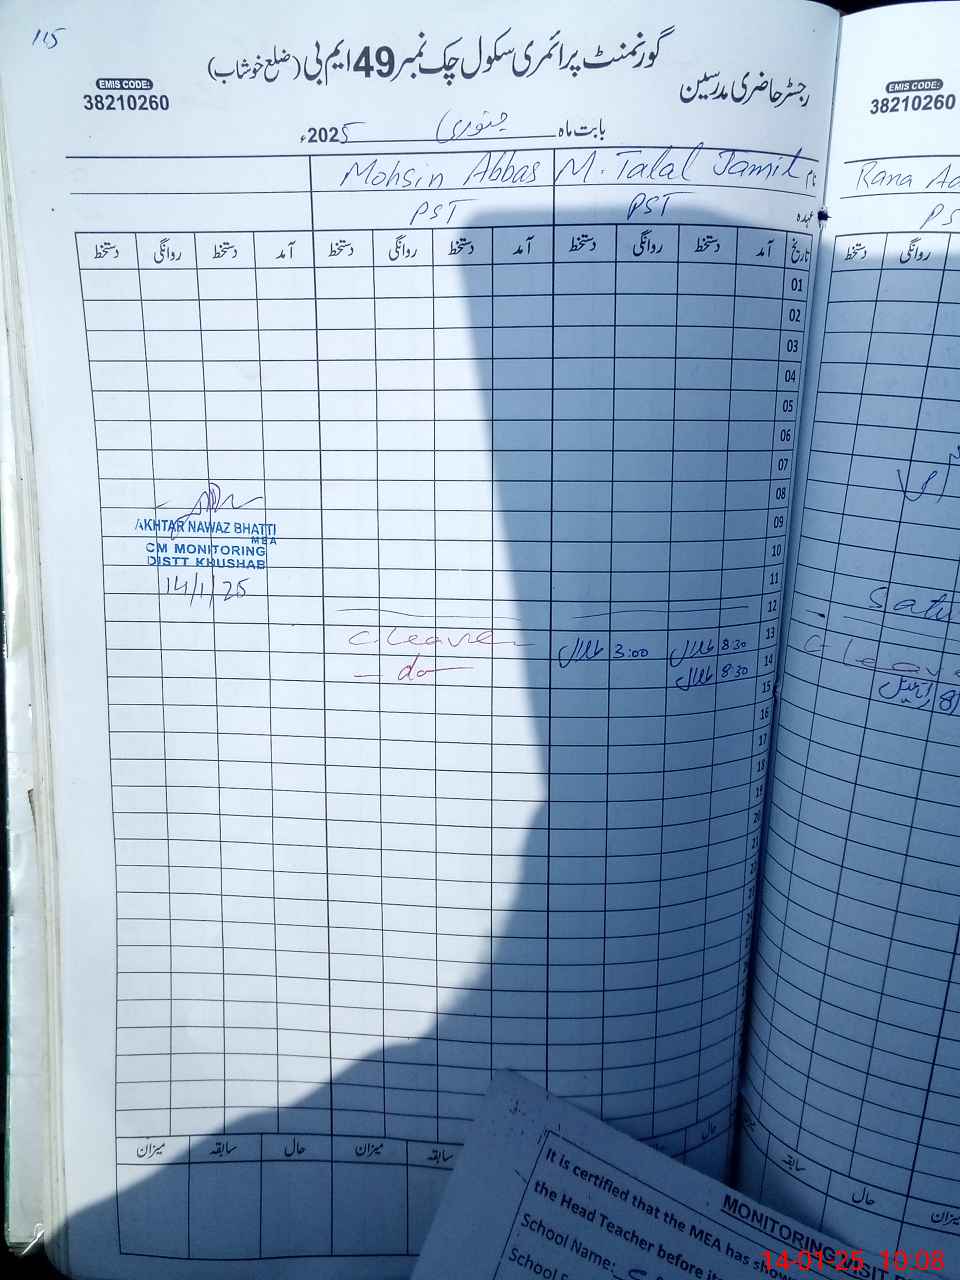 115
گورنمنٹ پرائمری سکول چک نمبر 49 ایم بی (ضلع خوشاب)
رجسٹر حاضری مدرسین
EMIS CODE:
38210260
بابت ماہ جنوری 2025ء
نام M. Talal Jamil Mohsin Abbas
عہدہ PST PST
تاریخ آمد دستخط روانگی دستخط آمد دستخط روانگی دستخط آمد دستخط روانگی دستخط
01
02
03
04
05
06
07
08
09
10
11
12
13 8:30 طلال 3:00 طلال C-leave
14 8:30 طلال — do —
15
16
17
18
19
AKHTAR NAWAZ BHATTI
MEA
CM MONITORING
DISTT KHUSHAB
14/1/25
حال سابقہ میزان حال سابقہ میزان
EMIS CODE:
38210260
Rana
PS
دستخط روانگی
C-leave
سابقہ حال میزان
MONITORING VISIT
It is certified that the MEA has
the Head Teacher before
School Name:
School
14-01-25 10:08